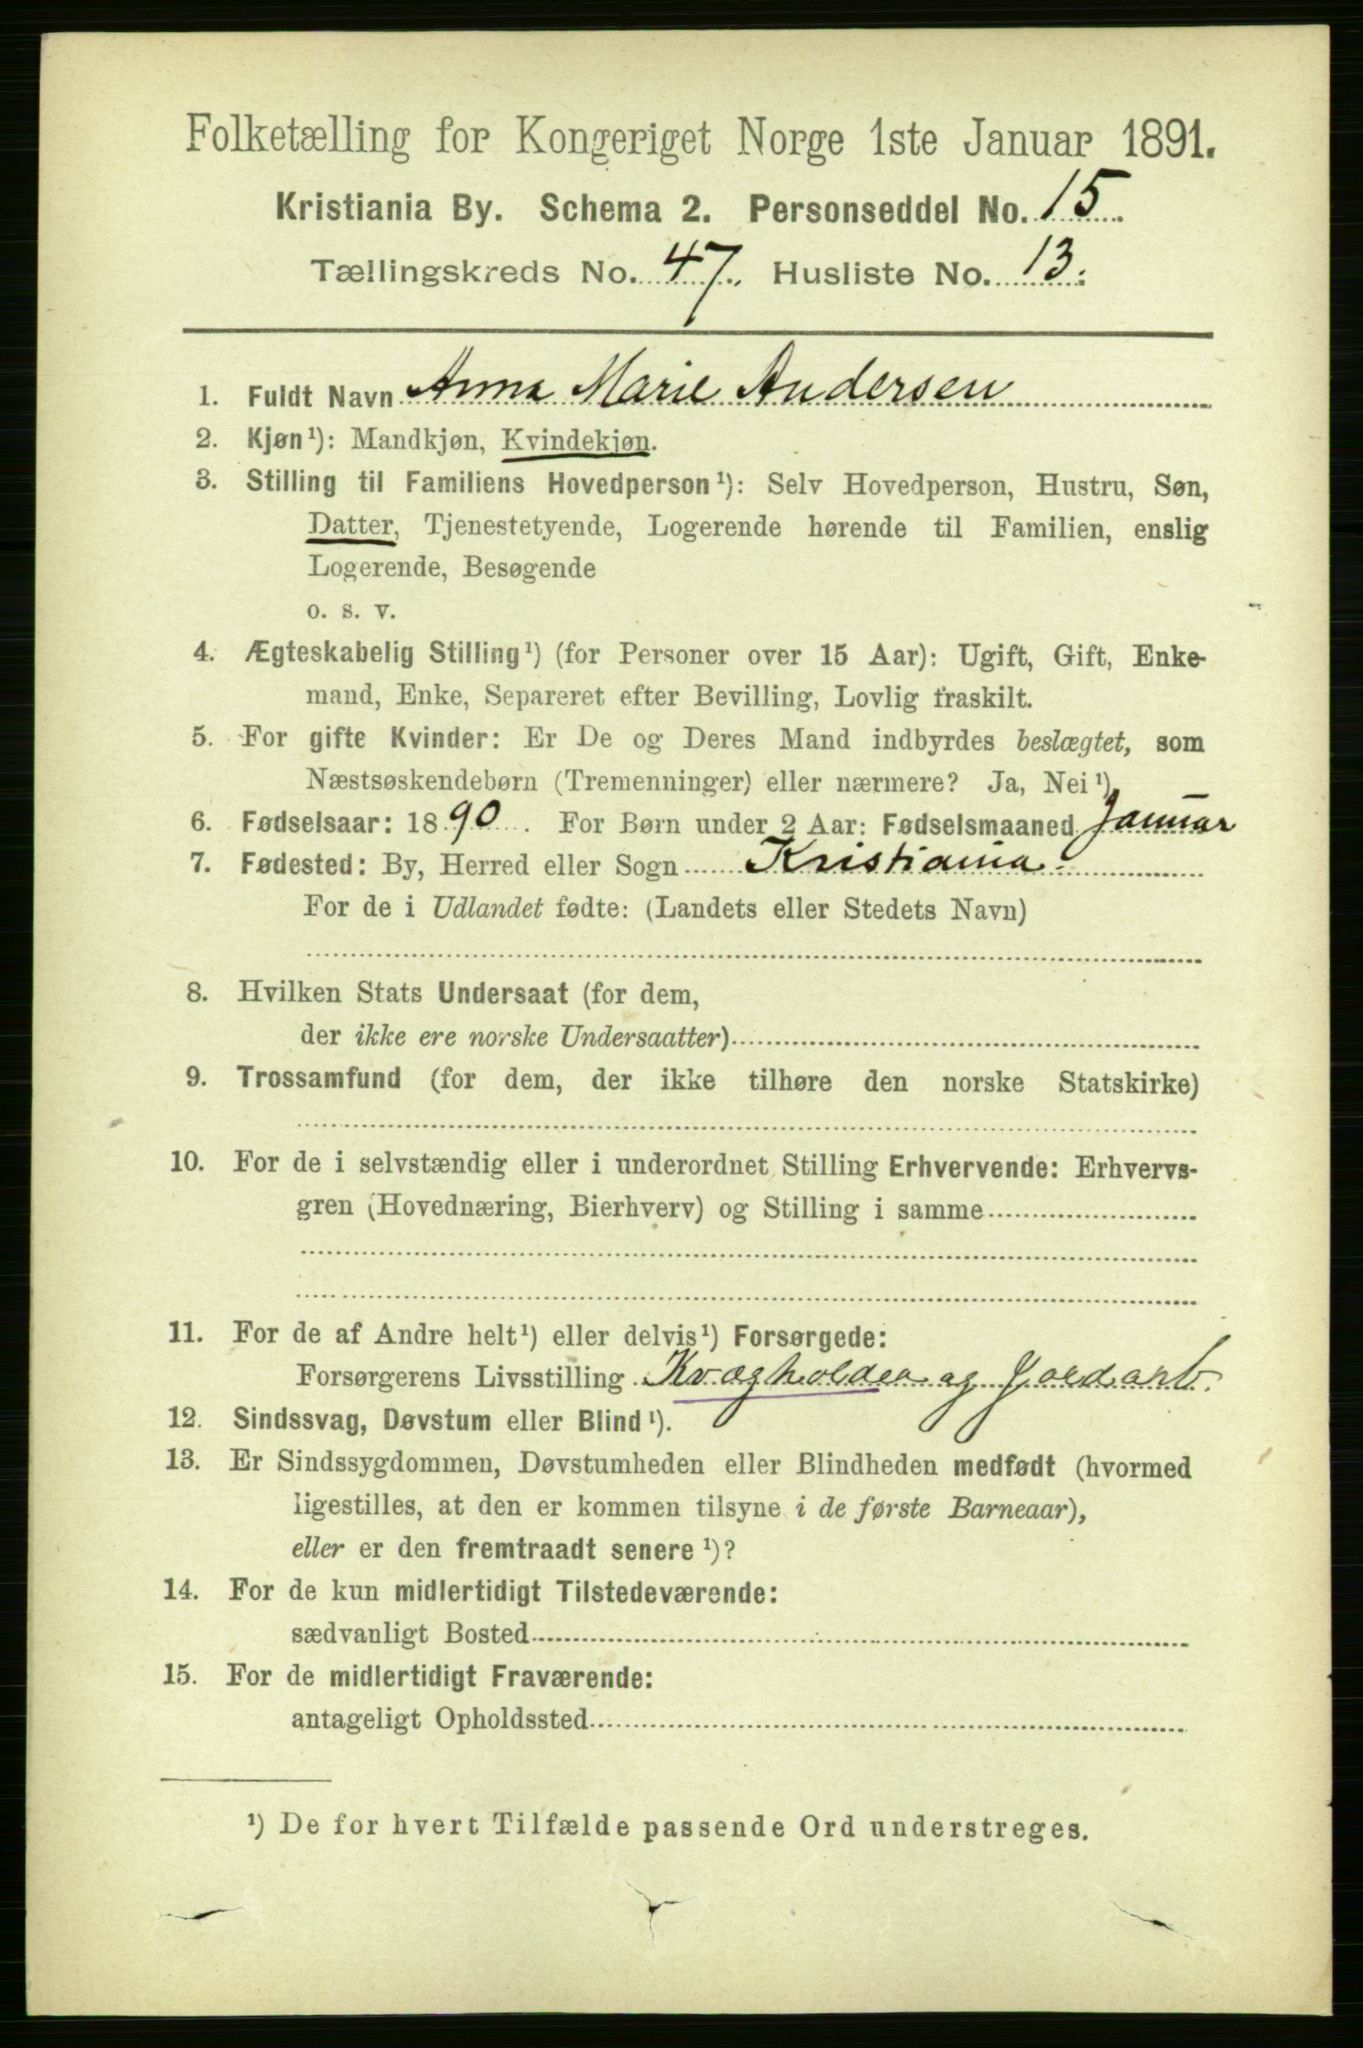 Folketælling for Kongeriget Norge 1ste Januar 1891.
Kristiania By. Schema 2. Personseddel No. 15
Tællingskreds No. 47. Husliste No. 13.
1. Fuldt Navn Anna Marie Andersen
2. Kjøn¹): Mandkjøn, Kvindekjøn.
3. Stilling til Familiens Hovedperson¹): Selv Hovedperson, Hustru, Søn,
Datter, Tjenestetyende, Logerende hørende til Familien, enslig
Logerende, Besøgende
o. s. v.
4. Ægteskabelig Stilling¹) (for Personer over 15 Aar): Ugift, Gift, Enke-
mand, Enke, Separeret efter Bevilling, Lovlig fraskilt.
5. For gifte Kvinder: Er De og Deres Mand indbyrdes beslægtet, som
Næstsøskendebørn (Tremenninger) eller nærmere? Ja, Nei¹)
6. Fødselsaar: 1890. For Børn under 2 Aar: Fødselsmaaned Januar
7. Fødested: By, Herred eller Sogn Kristiania
For de i Udlandet fødte: (Landets eller Stedets Navn)
8. Hvilken Stats Undersaat (for dem,
der ikke ere norske Undersaatter)
9. Trossamfund (for dem, der ikke tilhøre den norske Statskirke)
10. For de i selvstændig eller i underordnet Stilling Erhvervende: Erhvervs-
gren (Hovednæring, Bierhverv) og Stilling i samme
11. For de af Andre helt¹) eller delvis¹) Forsørgede:
Forsørgerens Livsstilling Kvægholder og Jordarb.
12. Sindssvag, Døvstum eller Blind¹).
13. Er Sindssygdommen, Døvstumheden eller Blindheden medfødt (hvormed
ligestilles, at den er kommen tilsyne i de første Barneaar),
eller er den fremtraadt senere¹)?
14. For de kun midlertidigt Tilstedeværende:
sædvanligt Bosted
15. For de midlertidigt Fraværende:
antageligt Opholdssted
¹) De for hvert Tilfælde passende Ord understreges.